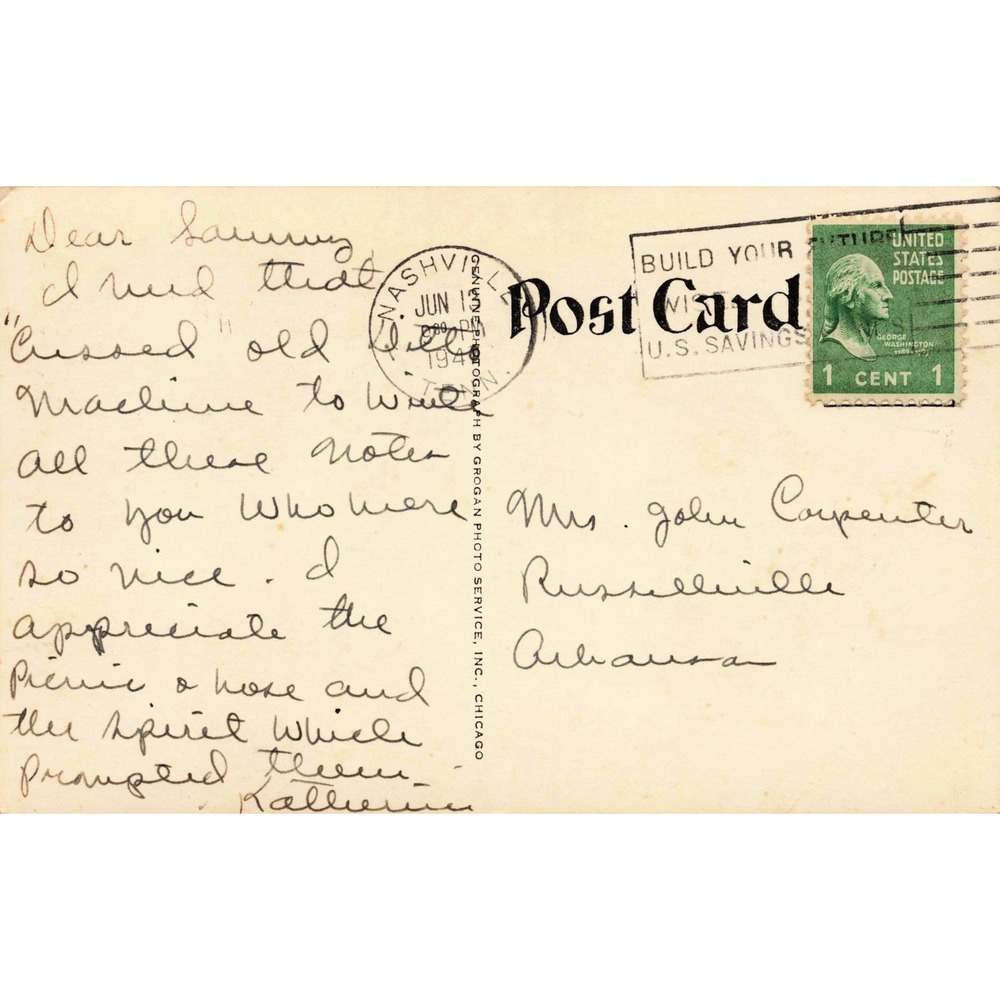 Dear Sammy,
I need that
"Cussed" old
Machine to write
all these notes
to you who were
so nice. I
appreciate the
Picnic & hose and
the spirit which
prompted them
Katherine
NASHVILLE
JUN 1
PM
194
TENN.
GENUINE PHOTOGRAPH BY GROGAN PHOTO SERVICE, INC., CHICAGO
Post Card
BUILD YOUR FUTURE
WIS
U.S. SAVINGS
UNITED
STATES
POSTAGE
GEORGE
WASHINGTON
1 CENT 1
Mrs. John Carpenter
Russellville
Arkansas